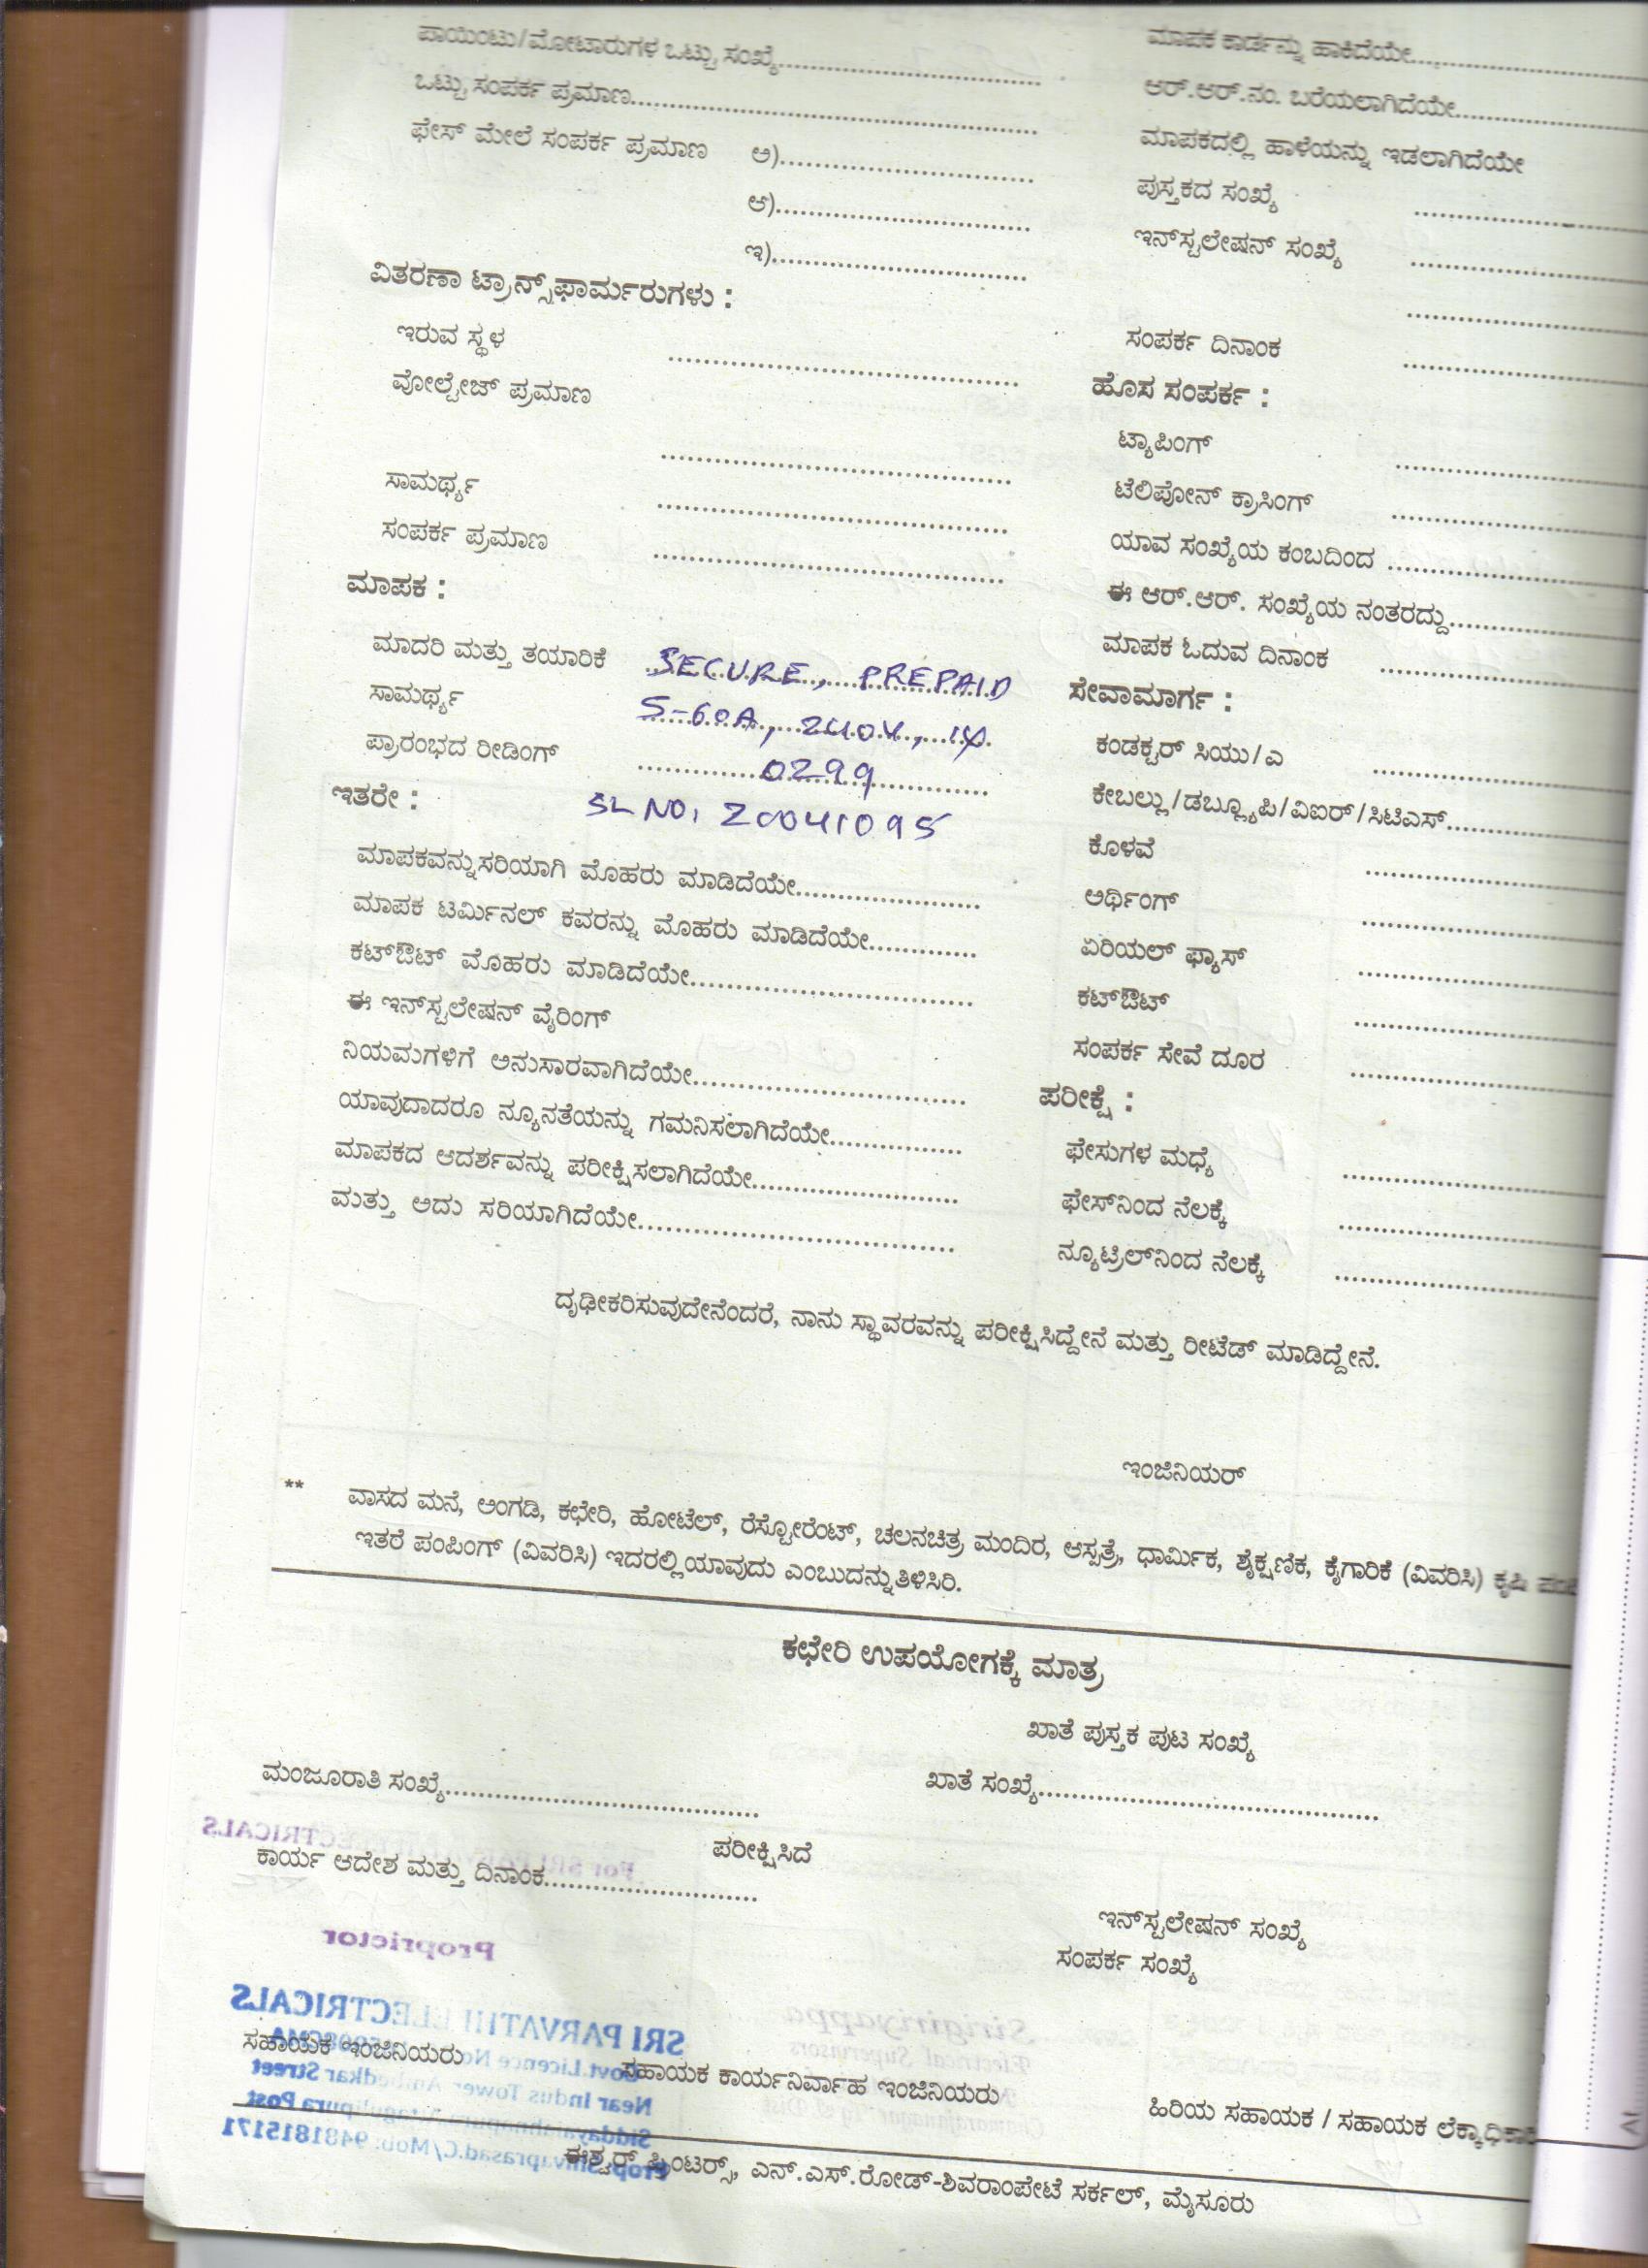 ಪಾಯಿಂಟು/ಮೋಟಾರುಗಳ ಒಟ್ಟು ಸಂಖ್ಯೆ..............................
ಒಟ್ಟು ಸಂಪರ್ಕ ಪ್ರಮಾಣ..............................
ಫೇಸ್ ಮೇಲೆ ಸಂಪರ್ಕ ಪ್ರಮಾಣ ಅ)..............................
ಆ)..............................
ಇ)..............................
ವಿತರಣಾ ಟ್ರಾನ್ಸ್‌ಫಾರ್ಮರುಗಳು :
ಇರುವ ಸ್ಥಳ ..............................
ವೋಲ್ಟೇಜ್ ಪ್ರಮಾಣ
..............................
ಸಾಮರ್ಥ್ಯ ..............................
ಸಂಪರ್ಕ ಪ್ರಮಾಣ ..............................
ಮಾಪಕ :
ಮಾದರಿ ಮತ್ತು ತಯಾರಿಕೆ SECURE, PREPAID
ಸಾಮರ್ಥ್ಯ 5-60A, 240V, 1φ
ಪ್ರಾರಂಭದ ರೀಡಿಂಗ್ 0299
ಇತರೇ : SL NO, Z0041095
ಮಾಪಕವನ್ನು ಸರಿಯಾಗಿ ಮೊಹರು ಮಾಡಿದೆಯೇ....................
ಮಾಪಕ ಟರ್ಮಿನಲ್ ಕವರನ್ನು ಮೊಹರು ಮಾಡಿದೆಯೇ.............
ಕಟ್‌ಔಟ್ ಮೊಹರು ಮಾಡಿದೆಯೇ..............................
ಈ ಇನ್‌ಸ್ಟಲೇಷನ್ ವೈರಿಂಗ್
ನಿಯಮಗಳಿಗೆ ಅನುಸಾರವಾಗಿದೆಯೇ..............................
ಯಾವುದಾದರೂ ನ್ಯೂನತೆಯನ್ನು ಗಮನಿಸಲಾಗಿದೆಯೇ...............
ಮಾಪಕದ ಆದರ್ಶವನ್ನು ಪರೀಕ್ಷಿಸಲಾಗಿದೆಯೇ........................
ಮತ್ತು ಅದು ಸರಿಯಾಗಿದೆಯೇ..............................
ಮಾಪಕ ಕಾರ್ಡನ್ನು ಹಾಕಿದೆಯೇ..............................
ಆರ್.ಆರ್.ನಂ. ಬರೆಯಲಾಗಿದೆಯೇ..............................
ಮಾಪಕದಲ್ಲಿ ಹಾಳೆಯನ್ನು ಇಡಲಾಗಿದೆಯೇ
ಪುಸ್ತಕದ ಸಂಖ್ಯೆ ..............................
ಇನ್‌ಸ್ಟಲೇಷನ್ ಸಂಖ್ಯೆ ..............................
..............................
ಸಂಪರ್ಕ ದಿನಾಂಕ ..............................
ಹೊಸ ಸಂಪರ್ಕ :
ಟ್ಯಾಪಿಂಗ್ ..............................
ಟೆಲಿಪೋನ್ ಕ್ರಾಸಿಂಗ್ ..............................
ಯಾವ ಸಂಖ್ಯೆಯ ಕಂಬದಿಂದ ..............................
ಈ ಆರ್.ಆರ್. ಸಂಖ್ಯೆಯ ನಂತರದ್ದು..............................
ಮಾಪಕ ಓದುವ ದಿನಾಂಕ ..............................
ಸೇವಾಮಾರ್ಗ :
ಕಂಡಕ್ಟರ್ ಸಿಯು/ಎ ..............................
ಕೇಬಲ್ಲು/ಡಬ್ಲ್ಯೂಪಿ/ವಿಐರ್/ಸಿಟಿಎಸ್..............................
ಕೊಳವೆ ..............................
ಅರ್ಥಿಂಗ್ ..............................
ಏರಿಯಲ್ ಫ್ಯಾಸ್ ..............................
ಕಟ್‌ಔಟ್ ..............................
ಸಂಪರ್ಕ ಸೇವೆ ದೂರ ..............................
ಪರೀಕ್ಷೆ :
ಫೇಸುಗಳ ಮಧ್ಯೆ ..............................
ಫೇಸ್‌ನಿಂದ ನೆಲಕ್ಕೆ ..............................
ನ್ಯೂಟ್ರಿಲ್‌ನಿಂದ ನೆಲಕ್ಕೆ ..............................
ದೃಢೀಕರಿಸುವುದೇನೆಂದರೆ, ನಾನು ಸ್ಥಾವರವನ್ನು ಪರೀಕ್ಷಿಸಿದ್ದೇನೆ ಮತ್ತು ರೀಟೆಡ್ ಮಾಡಿದ್ದೇನೆ.
ಇಂಜಿನಿಯರ್
** ವಾಸದ ಮನೆ, ಅಂಗಡಿ, ಕಛೇರಿ, ಹೋಟೆಲ್, ರೆಸ್ಟೋರೆಂಟ್, ಚಲನಚಿತ್ರ ಮಂದಿರ, ಆಸ್ಪತ್ರೆ, ಧಾರ್ಮಿಕ, ಶೈಕ್ಷಣಿಕ, ಕೈಗಾರಿಕೆ (ವಿವರಿಸಿ) ಕೃಷಿ
ಇತರೆ ಪಂಪಿಂಗ್ (ವಿವರಿಸಿ) ಇದರಲ್ಲಿ ಯಾವುದು ಎಂಬುದನ್ನು ತಿಳಿಸಿರಿ.
ಕಛೇರಿ ಉಪಯೋಗಕ್ಕೆ ಮಾತ್ರ
ಖಾತೆ ಪುಸ್ತಕ ಪುಟ ಸಂಖ್ಯೆ
ಮಂಜೂರಾತಿ ಸಂಖ್ಯೆ.............................. ಖಾತೆ ಸಂಖ್ಯೆ..............................
ಪರೀಕ್ಷಿಸಿದೆ
ಕಾರ್ಯ ಆದೇಶ ಮತ್ತು ದಿನಾಂಕ..............................
ಇನ್‌ಸ್ಟಲೇಷನ್ ಸಂಖ್ಯೆ
Proprietor
ಸಂಪರ್ಕ ಸಂಖ್ಯೆ
SRI PARVATHI ELECTRICALS
ಸಹಾಯಕ ಇಂಜಿನಿಯರು ಸಹಾಯಕ ಕಾರ್ಯನಿರ್ವಾಹ ಇಂಜಿನಿಯರು ಹಿರಿಯ ಸಹಾಯಕ / ಸಹಾಯಕ ಲೆಕ್ಕಾಧಿಕಾರಿ
Near Indus Tower Ambedkar Street
ಈಶ್ವರ್ ಪ್ರಿಂಟರ್ಸ್, ಎನ್.ಎಸ್.ರೋಡ್-ಶಿವರಾಂಪೇಟೆ ಸರ್ಕಲ್, ಮೈಸೂರು